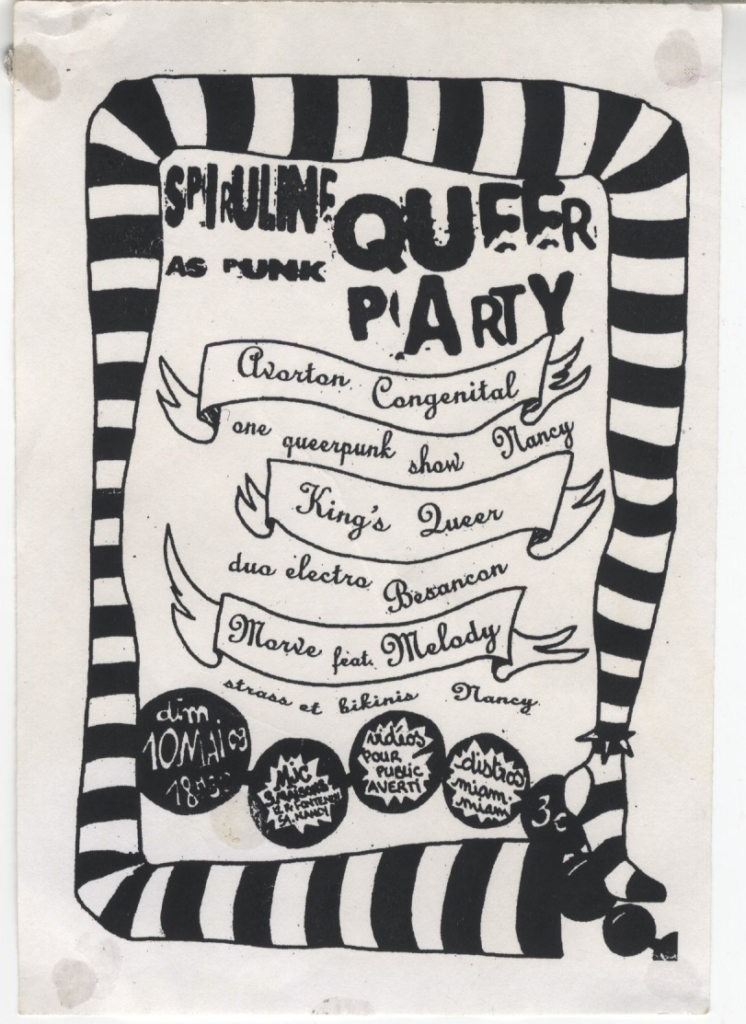 SPIRULINE
AS PUNK
QUEER
PARTY
Avorton Congenital
one queerpunk show Nancy
King's Queer
duo electro Besancon
Morve feat. Melody
strass et bikinis Nancy
dim
10 MAI 09
18H30
MJC
54. NANCY
vidéos
POUR
PUBLIC
AVERTI
distros
miam
miam
3€